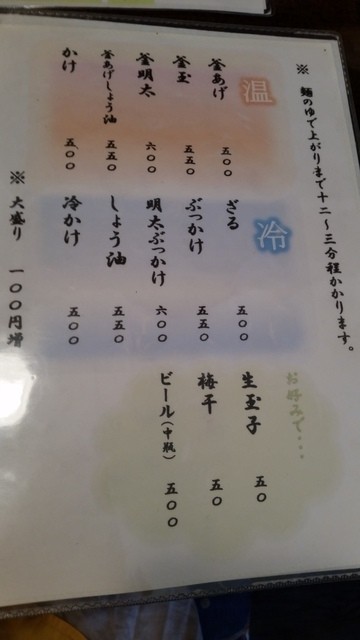 ※ 麺のゆで上がりまで十二～三分程かかります。
温
釜あげ 五〇〇
釜玉 五五〇
釜明太 六〇〇
釜あげしょう油 五五〇
かけ 五〇〇
冷
ざる 五〇〇
ぶっかけ 五五〇
明太ぶっかけ 六〇〇
しょう油 五五〇
冷かけ 五〇〇
お好みで・・・
生玉子 五〇
梅干 五〇
ビール（中瓶） 五〇〇
※ 大盛り 一〇〇円増